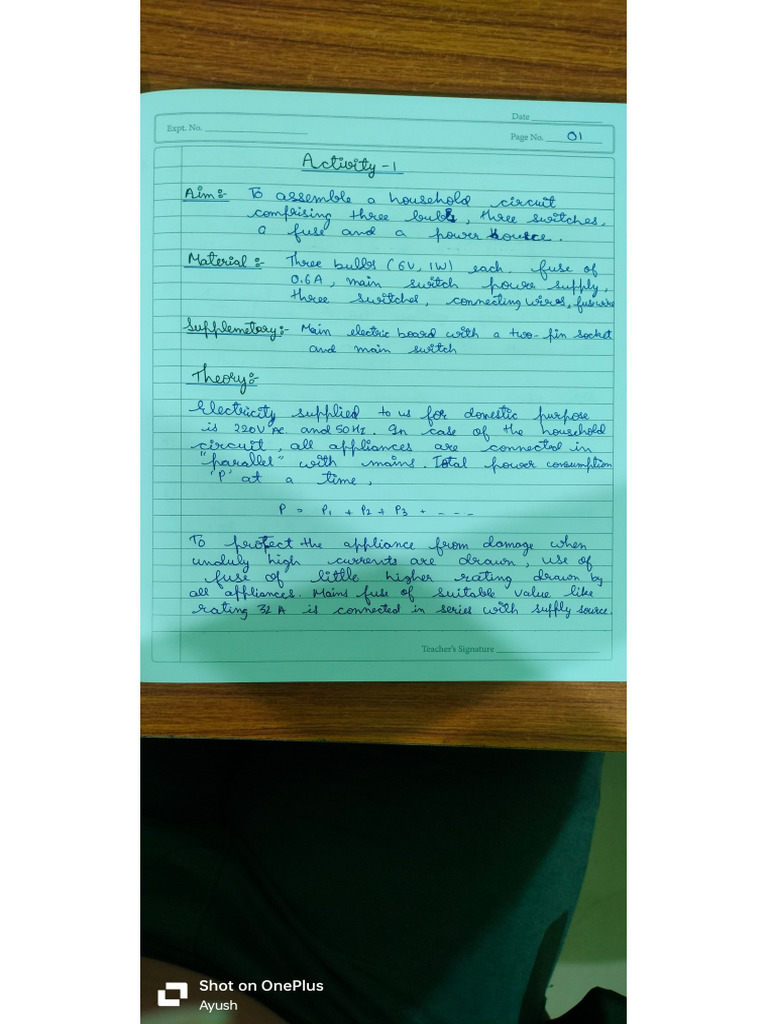 Date
Expt. No.
Page No. 01
Activity-1
Aim:- To assemble a household circuit
comprising three bulbs, three switches,
a fuse and a power source.
Material:- Three bulbs (6V, 1W) each. fuse of
0.6A, main switch power supply,
three switches, connecting wires, fuse wire
Supplemetory:- Main electric board with a two-pin socket
and main switch
Theory:-
Electricity supplied to us for domestic purpose
is 220V AC and 50Hz. In case of the household
circuit, all appliances are connected in
"parallel" with mains. Total power consumption
'P' at a time,
P = P1 + P2 + P3 + - - - -
To protect the appliance from damage when
unduly high currents are drawn, use of
fuse of little higher rating drawn by
all appliances. Mains fuse of suitable value like
rating 32 A is connected in series with supply source.
Teacher's Signature
Shot on OnePlus
Ayush